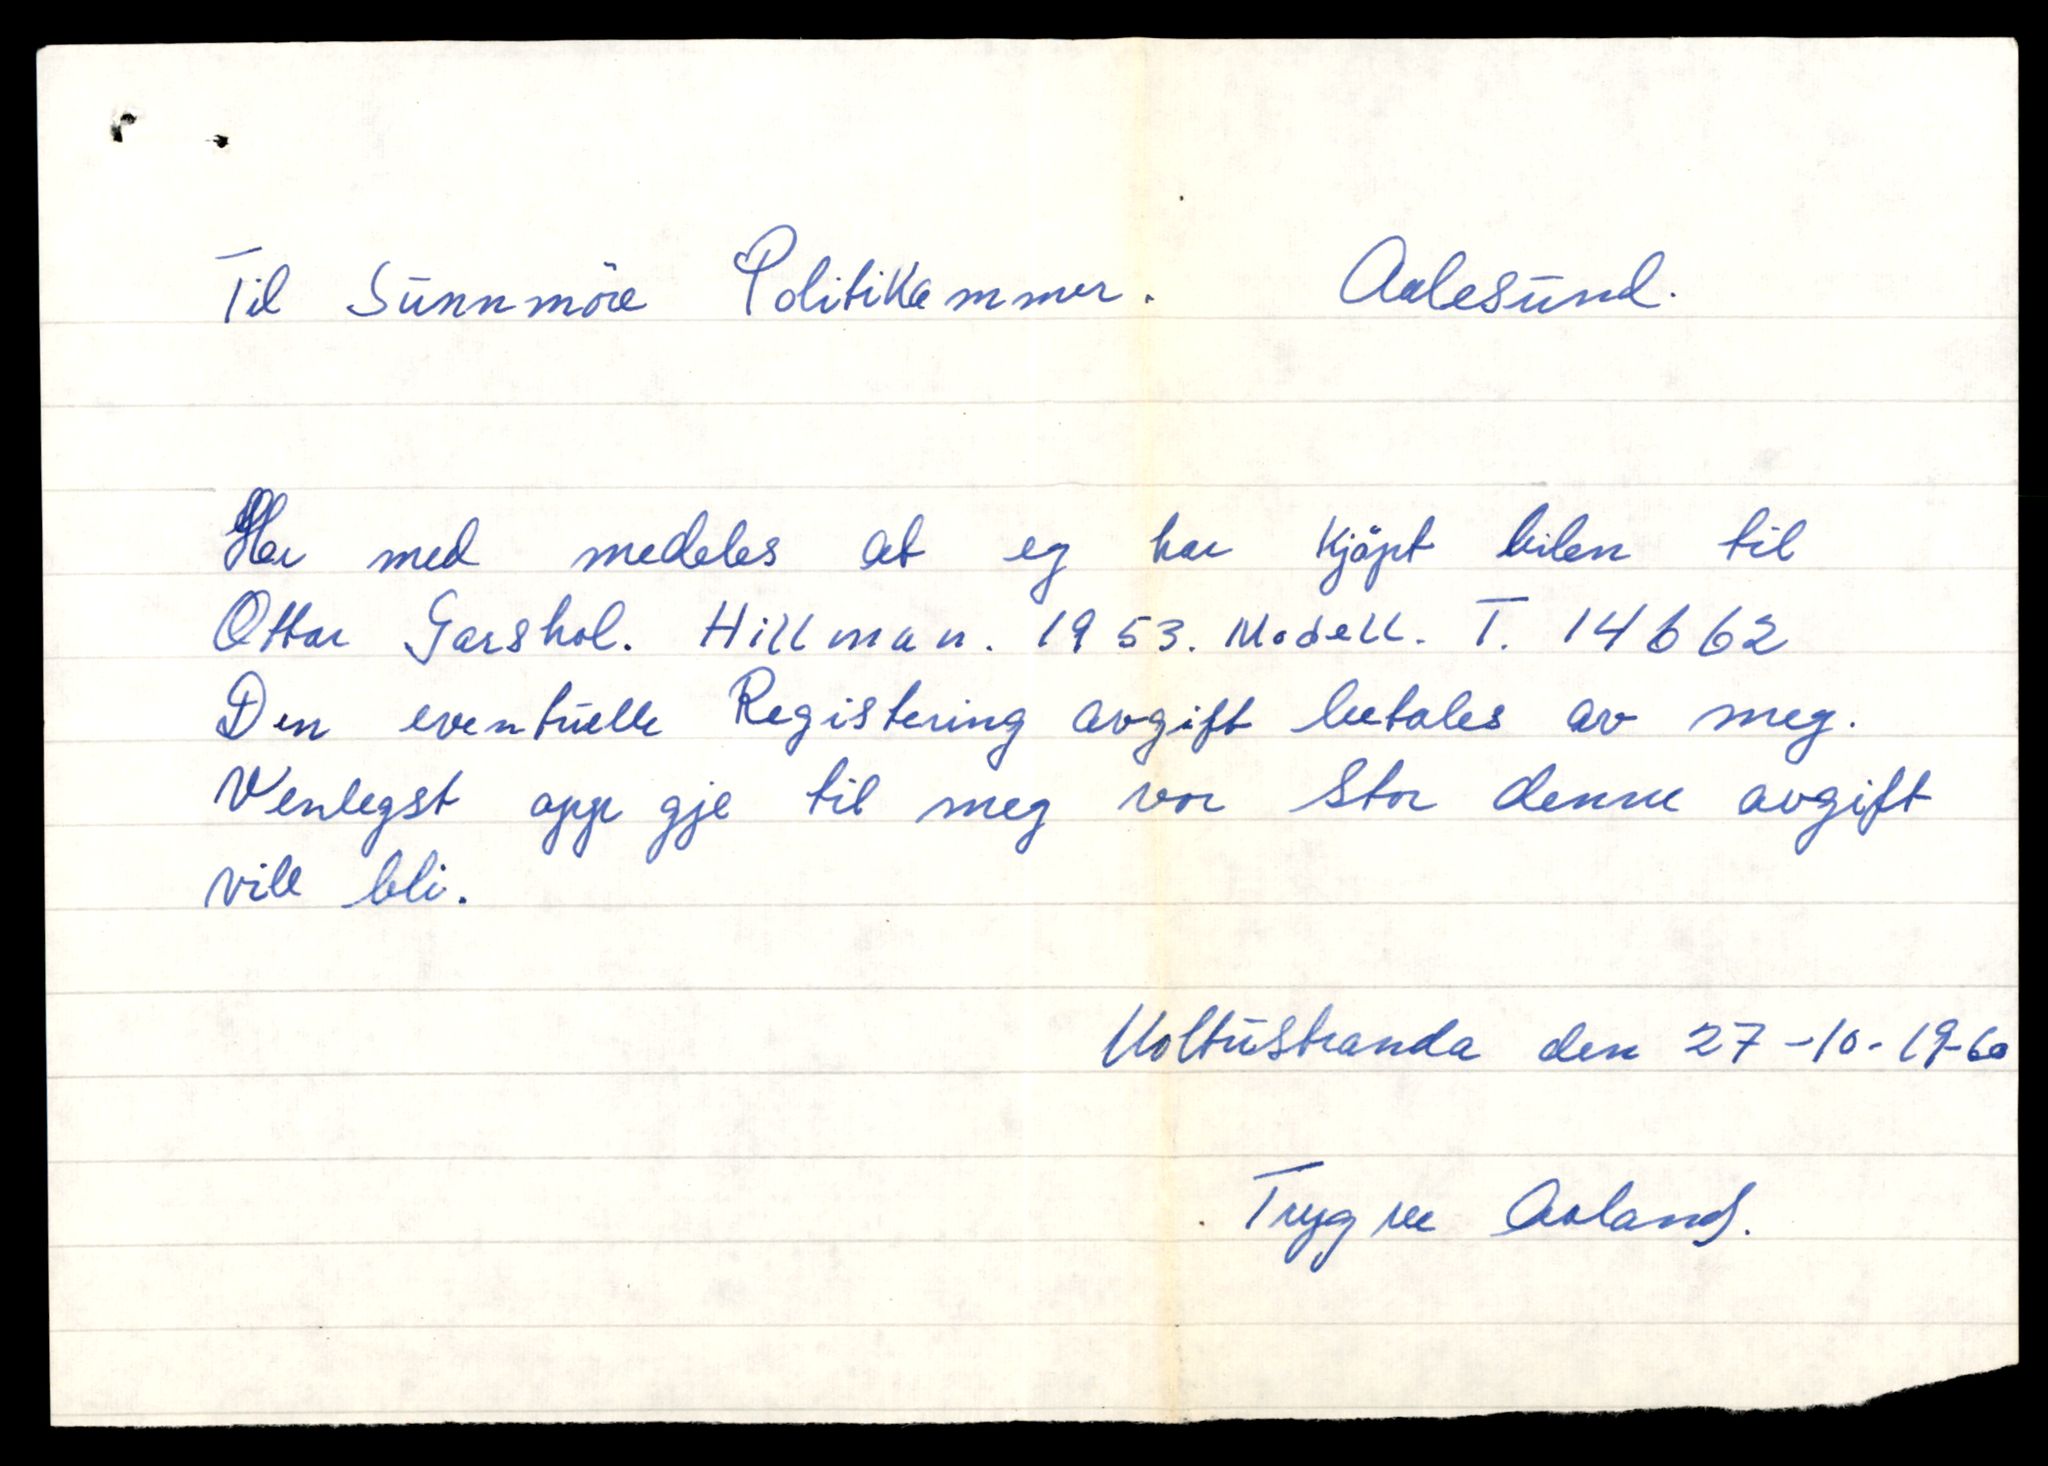 Til Sunnmöre Politikammer. Aalesund.
Her med medeles at eg har kjöpt bilen til
Ottar Garshol. Hillman. 1953. Modell. T. 14662
Den eventuelle Registering avgift betales av meg.
Venlegst opp gje til meg vor stor denne avgift
vill bli.
Moltustranda den 27-10-19-60
Trygve Aoland.